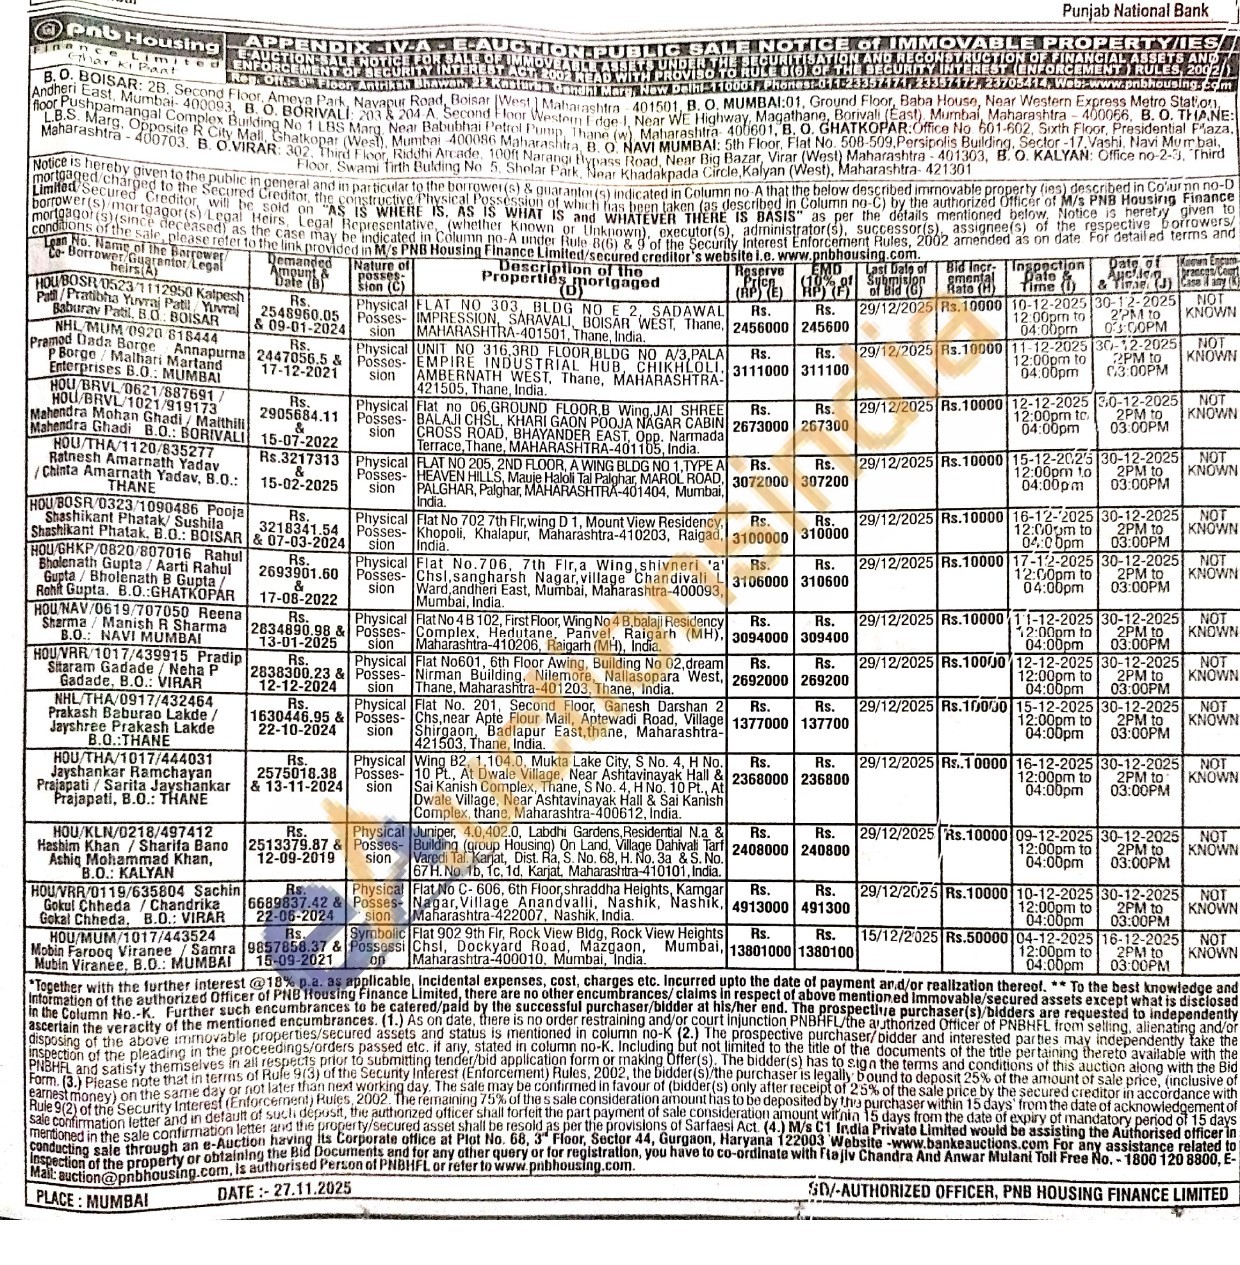 Punjab National Bank
pnb Housing
Finance Limited
Ghar Ki Baat
APPENDIX -IV-A - E-AUCTION-PUBLIC SALE NOTICE of IMMOVABLE PROPERTY/IES
E-AUCTION-SALE NOTICE FOR SALE OF IMMOVEABLE ASSETS UNDER THE SECURITISATION AND RECONSTRUCTION OF FINANCIAL ASSETS AND
ENFORCEMENT OF SECURITY INTEREST ACT, 2002 READ WITH PROVISO TO RULE 8(6) OF THE SECURITY INTEREST (ENFORCEMENT) RULES, 2002
Reg. Off.:- 9th Floor, Antriksh Bhawan, 22 Kasturba Gandhi Marg, New Delhi-110001, Phones:-011-23357171, 23357172, 23705414, Web:-www.pnbhousing.com
B. O. BOISAR: 2B, Second Floor, Ameya Park, Navapur Road, Boisar [West] Maharashtra - 401501, B. O. MUMBAI:01, Ground Floor, Baba House, Near Western Express Metro Station,
Andheri East, Mumbai- 400093, B. O. BORIVALI: 203 & 204 A, Second Floor Western Edge I, Near WE Highway, Magathane, Borivali (East), Mumbai, Maharashtra - 400066, B. O. THANE:
floor Pushpamangal Complex Building No 1 LBS Marg, Near Babubhai Petrol Pump, Thane (w), Maharashtra- 400601, B. O. GHATKOPAR:Office No 601-602, Sixth Floor, Presidential Plaza,
L.B.S. Marg, Opposite R City Mall, Ghatkopar (West), Mumbai -400086 Maharashtra, B. O. NAVI MUMBAI: 5th Floor, Flat No. 508-509,Persipolis Building, Sector -17,Vashi, Navi Mumbai,
Maharashtra - 400703, B. O.VIRAR: 302, Third Floor, Riddhi Arcade, 100ft Narangi Bypass Road, Near Big Bazar, Virar (West) Maharashtra - 401303, B. O. KALYAN: Office no-2-3, Third
Floor, Swami Tirth Building No 5, Shelar Park, Near Khadakpada Circle,Kalyan (West), Maharashtra- 421301
Notice is hereby given to the public in general and in particular to the borrower(s) & guarantor(s) indicated in Column no-A that the below described immovable property (ies) described in Column no-D
mortgaged/charged to the Secured Creditor, the constructive/Physical Possession of which has been taken (as described in Column no-C) by the authorized Officer of M/s PNB Housing Finance
Limited/Secured Creditor, will be sold on "AS IS WHERE IS, AS IS WHAT IS and WHATEVER THERE IS BASIS" as per the details mentioned below. Notice is hereby given to
borrower(s)/mortgagor(s)/Legal Heirs, Legal Representative, (whether Known or Unknown), executor(s), administrator(s), successor(s), assignee(s) of the respective borrowers/
mortgagor(s)(since deceased) as the case may be indicated in Column no-A under Rule 8(6) & 9 of the Security Interest Enforcement Rules, 2002 amended as on date. For detailed terms and
conditions of the sale, please refer to the link provided in M/s PNB Housing Finance Limited/secured creditor's website i.e. www.pnbhousing.com.
Loan No. Name of the Borrower/ Co- Borrower/Guarantor/Legal heirs(A) | Demanded Amount & Date (B) | Nature of Possession (C) | Description of the Properties mortgaged (D) | Reserve Price (RP) (E) | EMD (10% of RP) (F) | Last Date of Submision of Bid (G) | Bid Incremental Rate (H) | Inspection Date & Time (I) | Date of Auction & Time, (J) | Known Encumbrances/Court Case if any (K)
HOU/BOSR/0523/1112950 Kalpesh Patil / Pratibha Yuvraj Patil / Yuvraj Baburav Patil, B.O: BOISAR | Rs. 2548960.05 & 09-01-2024 | Physical Possession | FLAT NO 303, BLDG NO E 2, SADAWAL IMPRESSION, SARAVALI, BOISAR WEST, Thane, MAHARASHTRA-401501, Thane, India. | Rs. 2456000 | Rs. 245600 | 29/12/2025 | Rs.10000 | 10-12-2025 12:00pm to 04:00pm | 30-12-2025 2PM to 03:00PM | NOT KNOWN
NHL/MUM/0920 818444 Pramod Dada Borge / Annapurna P Borge / Malhari Martand Enterprises B.O.: MUMBAI | Rs. 2447056.5 & 17-12-2021 | Physical Possession | UNIT NO 316,3RD FLOOR,BLDG NO A/3,PALA EMPIRE INDUSTRIAL HUB, CHIKHLOLI, AMBERNATH WEST, Thane, MAHARASHTRA-421505, Thane, India. | Rs. 3111000 | Rs. 311100 | 29/12/2025 | Rs.10000 | 11-12-2025 12:00pm to 04:00pm | 30-12-2025 2PM to 03:00PM | NOT KNOWN
HOU/BRVL/0621/887691 / HOU/BRVL/1021/919173 Mahendra Mohan Ghadi / Maithili Mahendra Ghadi B.O.: BORIVALI | Rs. 2905684.11 & 15-07-2022 | Physical Possession | Flat no 06,GROUND FLOOR,B Wing,JAI SHREE BALAJI CHSL, KHARI GAON POOJA NAGAR CABIN CROSS ROAD, BHAYANDER EAST, Opp. Narmada Terrace,Thane, MAHARASHTRA-401105, India. | Rs. 2673000 | Rs. 267300 | 29/12/2025 | Rs.10000 | 12-12-2025 12:00pm to 04:00pm | 30-12-2025 2PM to 03:00PM | NOT KNOWN
HOU/THA/1120/835277 Ratnesh Amarnath Yadav / Chinta Amarnath Yadav, B.O.: THANE | Rs.3217313 & 15-02-2025 | Physical Possession | FLAT NO 205, 2ND FLOOR, A WING BLDG NO 1,TYPE A HEAVEN HILLS, Mauje Haloli Tal Palghar, MAROL ROAD, PALGHAR, Palghar, MAHARASHTRA-401404, Mumbai, India. | Rs. 3072000 | Rs. 307200 | 29/12/2025 | Rs.10000 | 15-12-2025 12:00pm to 04:00pm | 30-12-2025 2PM to 03:00PM | NOT KNOWN
HOU/BOSR/0323/1090486 Pooja Shashikant Phatak/ Sushila Shashikant Phatak, B.O.: BOISAR | Rs. 3218341.54 & 07-03-2024 | Physical Possession | Flat No 702 7th Flr,wing D 1, Mount View Residency, Khopoli, Khalapur, Maharashtra-410203, Raigad, India. | Rs. 3100000 | Rs. 310000 | 29/12/2025 | Rs.10000 | 16-12-2025 12:00pm to 04:00pm | 30-12-2025 2PM to 03:00PM | NOT KNOWN
HOU/GHKP/0820/807016 Rahul Bholenath Gupta / Aarti Rahul Gupta / Bholenath B Gupta / Rohit Gupta, B.O.:GHATKOPAR | Rs. 2693901.60 & 17-08-2022 | Physical Possession | Flat No.706, 7th Flr,a Wing,shivneri 'a' Chsl,sangharsh Nagar,village Chandivali L Ward,andheri East, Mumbai, Maharashtra-400093, Mumbai, India. | Rs. 3106000 | Rs. 310600 | 29/12/2025 | Rs.10000 | 17-12-2025 12:00pm to 04:00pm | 30-12-2025 2PM to 03:00PM | NOT KNOWN
HOU/NAV/0619/707050 Reena Sharma / Manish R Sharma B.O.: NAVI MUMBAI | Rs. 2634890.98 & 13-01-2025 | Physical Possession | Flat No 4 B 102, First Floor, Wing No 4 B,balaji Residency Complex, Hedutane, Panvel, Raigarh (MH), Maharashtra-410206, Raigarh (MH), India. | Rs. 3094000 | Rs. 309400 | 29/12/2025 | Rs.10000 | 11-12-2025 12:00pm to 04:00pm | 30-12-2025 2PM to 03:00PM | NOT KNOWN
HOU/VRR/1017/439915 Pradip Sitaram Gadade / Neha P Gadade, B.O.: VIRAR | Rs. 2838300.23 & 12-12-2024 | Physical Possession | Flat No601, 6th Floor Awing, Building No 02,dream Nirman Building, Nilemore, Nallasopara West, Thane, Maharashtra-401203, Thane, India. | Rs. 2692000 | Rs. 269200 | 29/12/2025 | Rs.10000 | 12-12-2025 12:00pm to 04:00pm | 30-12-2025 2PM to 03:00PM | NOT KNOWN
NHL/THA/0917/432464 Prakash Baburao Lakde / Jayshree Prakash Lakde B.O.:THANE | Rs. 1630446.95 & 22-10-2024 | Physical Possession | Flat No. 201, Second Floor, Ganesh Darshan 2 Chs,near Apte Flour Mail, Aptewadi Road, Village Shirgaon, Badlapur East,thane, Maharashtra-421503, Thane, India. | Rs. 1377000 | Rs. 137700 | 29/12/2025 | Rs.10000 | 15-12-2025 12:00pm to 04:00pm | 30-12-2025 2PM to 03:00PM | NOT KNOWN
HOU/THA/1017/444031 Jayshankar Ramchayan Prajapati / Sarita Jayshankar Prajapati, B.O.: THANE | Rs. 2575018.38 & 13-11-2024 | Physical Possession | Wing B2, 1,104.0, Mukta Lake City, S No. 4, H No. 10 Pt., At Dwale Village, Near Ashtavinayak Hall & Sai Kanish Complex, Thane, S No. 4, H No. 10 Pt., At Dwale Village, Near Ashtavinayak Hall & Sai Kanish Complex, thane, Maharashtra-400612, India. | Rs. 2368000 | Rs. 236800 | 29/12/2025 | Rs.10000 | 16-12-2025 12:00pm to 04:00pm | 30-12-2025 2PM to 03:00PM | NOT KNOWN
HOU/KLN/0218/497412 Hashim Khan / Sharifa Bano Ashiq Mohammad Khan, B.O.: KALYAN | Rs. 2513379.87 & 12-09-2019 | Physical Possession | Juniper, 4.0,402.0, Labdhi Gardens,Residential N.a & Building (group Housing) On Land, Village Dahivali Tarf Waredi Tal. Karjat, Dist. Ra, S. No. 68, H. No. 3a & S. No. 67H. No. 1b, 1c, 1d, Karjat, Maharashtra-410101, India. | Rs. 2408000 | Rs. 240800 | 29/12/2025 | Rs.10000 | 09-12-2025 12:00pm to 04:00pm | 30-12-2025 2PM to 03:00PM | NOT KNOWN
HOU/VRR/0119/635804 Sachin Gokul Chheda / Chandrika Gokal Chheda, B.O.: VIRAR | Rs. 6689837.42 & 22-06-2024 | Physical Possession | Flat No C- 606, 6th Floor,shraddha Heights, Kamgar Nagar,Village Anandvalli, Nashik, Nashik, Maharashtra-422007, Nashik, India. | Rs. 4913000 | Rs. 491300 | 29/12/2025 | Rs.10000 | 10-12-2025 12:00pm to 04:00pm | 30-12-2025 2PM to 03:00PM | NOT KNOWN
HOU/MUM/1017/443524 Mobin Farooq Viranee / Samra Mubin Viranee, B.O.: MUMBAI | Rs. 9857858.37 & 15-09-2021 | Symbolic Possession | Flat 902 9th Flr, Rock View Bldg, Rock View Heights Chsl, Dockyard Road, Mazgaon, Mumbai, Maharashtra-400010, Mumbai, India. | Rs. 13801000 | Rs. 1380100 | 15/12/2025 | Rs.50000 | 04-12-2025 12:00pm to 04:00pm | 16-12-2025 2PM to 03:00PM | NOT KNOWN
*Together with the further interest @18% p.a. as applicable, incidental expenses, cost, charges etc. Incurred upto the date of payment and/or realization thereof. ** To the best knowledge and
information of the authorized Officer of PNB Housing Finance Limited, there are no other encumbrances/ claims in respect of above mentioned immovable/secured assets except what is disclosed
in the Column No.-K. Further such encumbrances to be catered/paid by the successful purchaser/bidder at his/her end. The prospective purchaser(s)/bidders are requested to independently
ascertain the veracity of the mentioned encumbrances. (1.) As on date, there is no order restraining and/or court injunction PNBHFL/the authorized Officer of PNBHFL from selling, alienating and/or
disposing of the above immovable properties/secured assets and status is mentioned in column no-K (2.) The prospective purchaser/bidder and interested parties may independently take the
inspection of the pleading in the proceedings/orders passed etc. if any, stated in column no-K. Including but not limited to the title of the documents of the title pertaining thereto available with the
PNBHFL and satisfy themselves in all respects prior to submitting tender/bid application form or making Offer(s). The bidder(s) has to sign the terms and conditions of this auction along with the Bid
Form. (3.) Please note that in terms of Rule 9(3) of the Security Interest (Enforcement) Rules, 2002, the bidder(s)/the purchaser is legally bound to deposit 25% of the amount of sale price, (inclusive of
earnest money) on the same day or not later than next working day. The sale may be confirmed in favour of (bidder(s) only after receipt of 25% of the sale price by the secured creditor in accordance with
Rule 9(2) of the Security Interest (Enforcement) Rules, 2002. The remaining 75% of the s sale consideration amount has to be deposited by the purchaser within 15 days' from the date of acknowledgement of
sale confirmation letter and in default of such deposit, the authorized officer shall forfeit the part payment of sale consideration amount within 15 days from the date of expiry of mandatory period of 15 days
mentioned in the sale confirmation letter and the property/secured asset shall be resold as per the provisions of Sarfaesi Act. (4.) M/s C1 India Private Limited would be assisting the Authorised officer in
conducting sale through an e-Auction having its Corporate office at Plot No. 68, 3rd Floor, Sector 44, Gurgaon, Haryana 122003 Website -www.bankeauctions.com For any assistance related to
inspection of the property or obtaining the Bid Documents and for any other query or for registration, you have to co-ordinate with Rajiv Chandra And Anwar Mulani Toll Free No. - 1800 120 8800, E-
Mail: auction@pnbhousing.com, is authorised Person of PNBHFL or refer to www.pnbhousing.com.
PLACE : MUMBAI DATE :- 27.11.2025 SD/-AUTHORIZED OFFICER, PNB HOUSING FINANCE LIMITED
eAuctionsindia